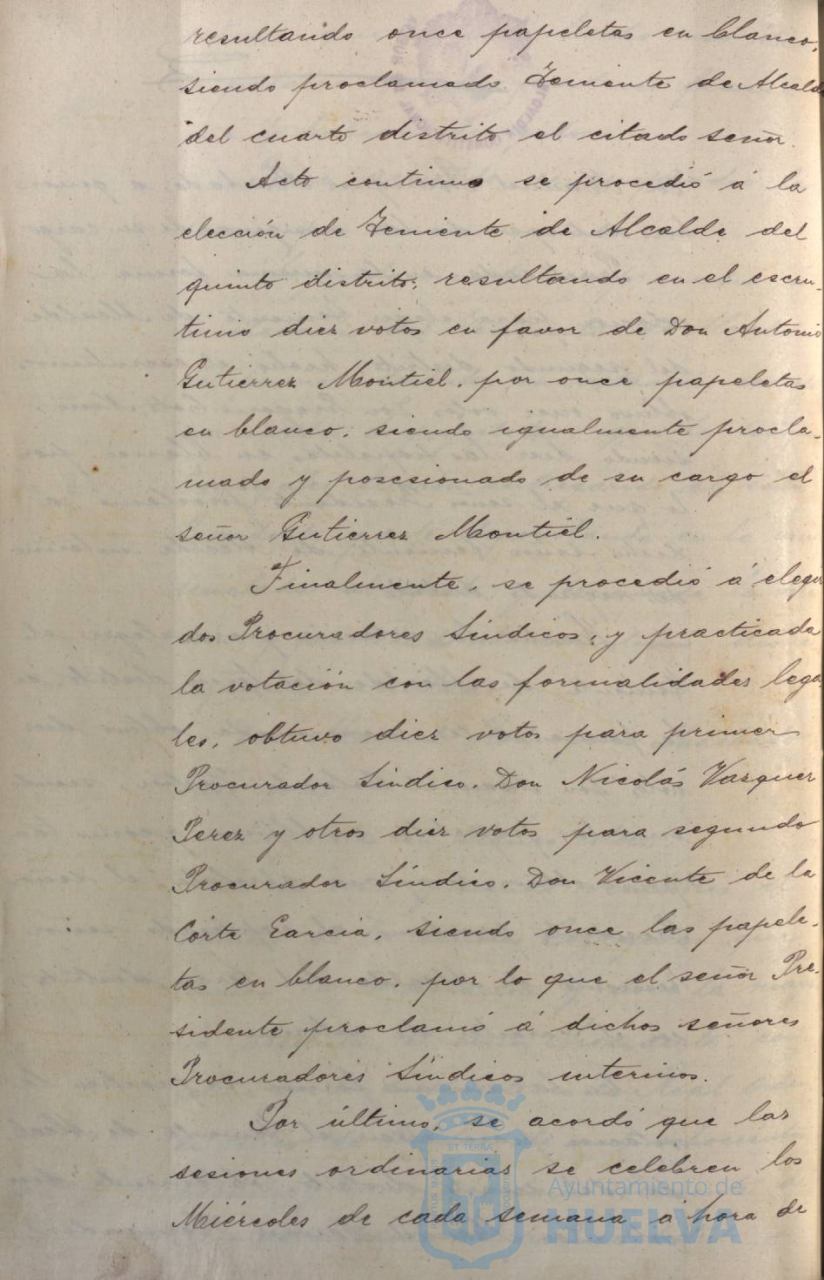 resultando once papeletas en blanco,
siendo proclamado Teniente de Alcalde
del cuarto distrito el citado señor.
Acto continuo se procedió á la
elección de Teniente de Alcalde del
quinto distrito, resultando en el escru-
tinio diez votos en favor de Don Antonio
Gutierrez Montiel, por once papeletas
en blanco, siendo igualmente procla-
mado y posesionado de su cargo el
señor Gutierrez Montiel.
Finalmente, se procedió á elegir
dos Procuradores Síndicos, y practicada
la votación con las formalidades lega-
les, obtuvo diez votos para primer
Procurador Síndico, Don Nicolás Vazquez
Perez y otros diez votos para segundo
Procurador Síndico, Don Vicente de la
Corte García, siendo once las papele-
tas en blanco, por lo que el señor Pre-
sidente proclamó á dichos señores
Procuradores Síndicos interinos.
Por último, se acordó que las
sesiones ordinarias se celebren los
Miércoles de cada semana á hora de
ET TERRÆ
Ayuntamiento de
HUELVA